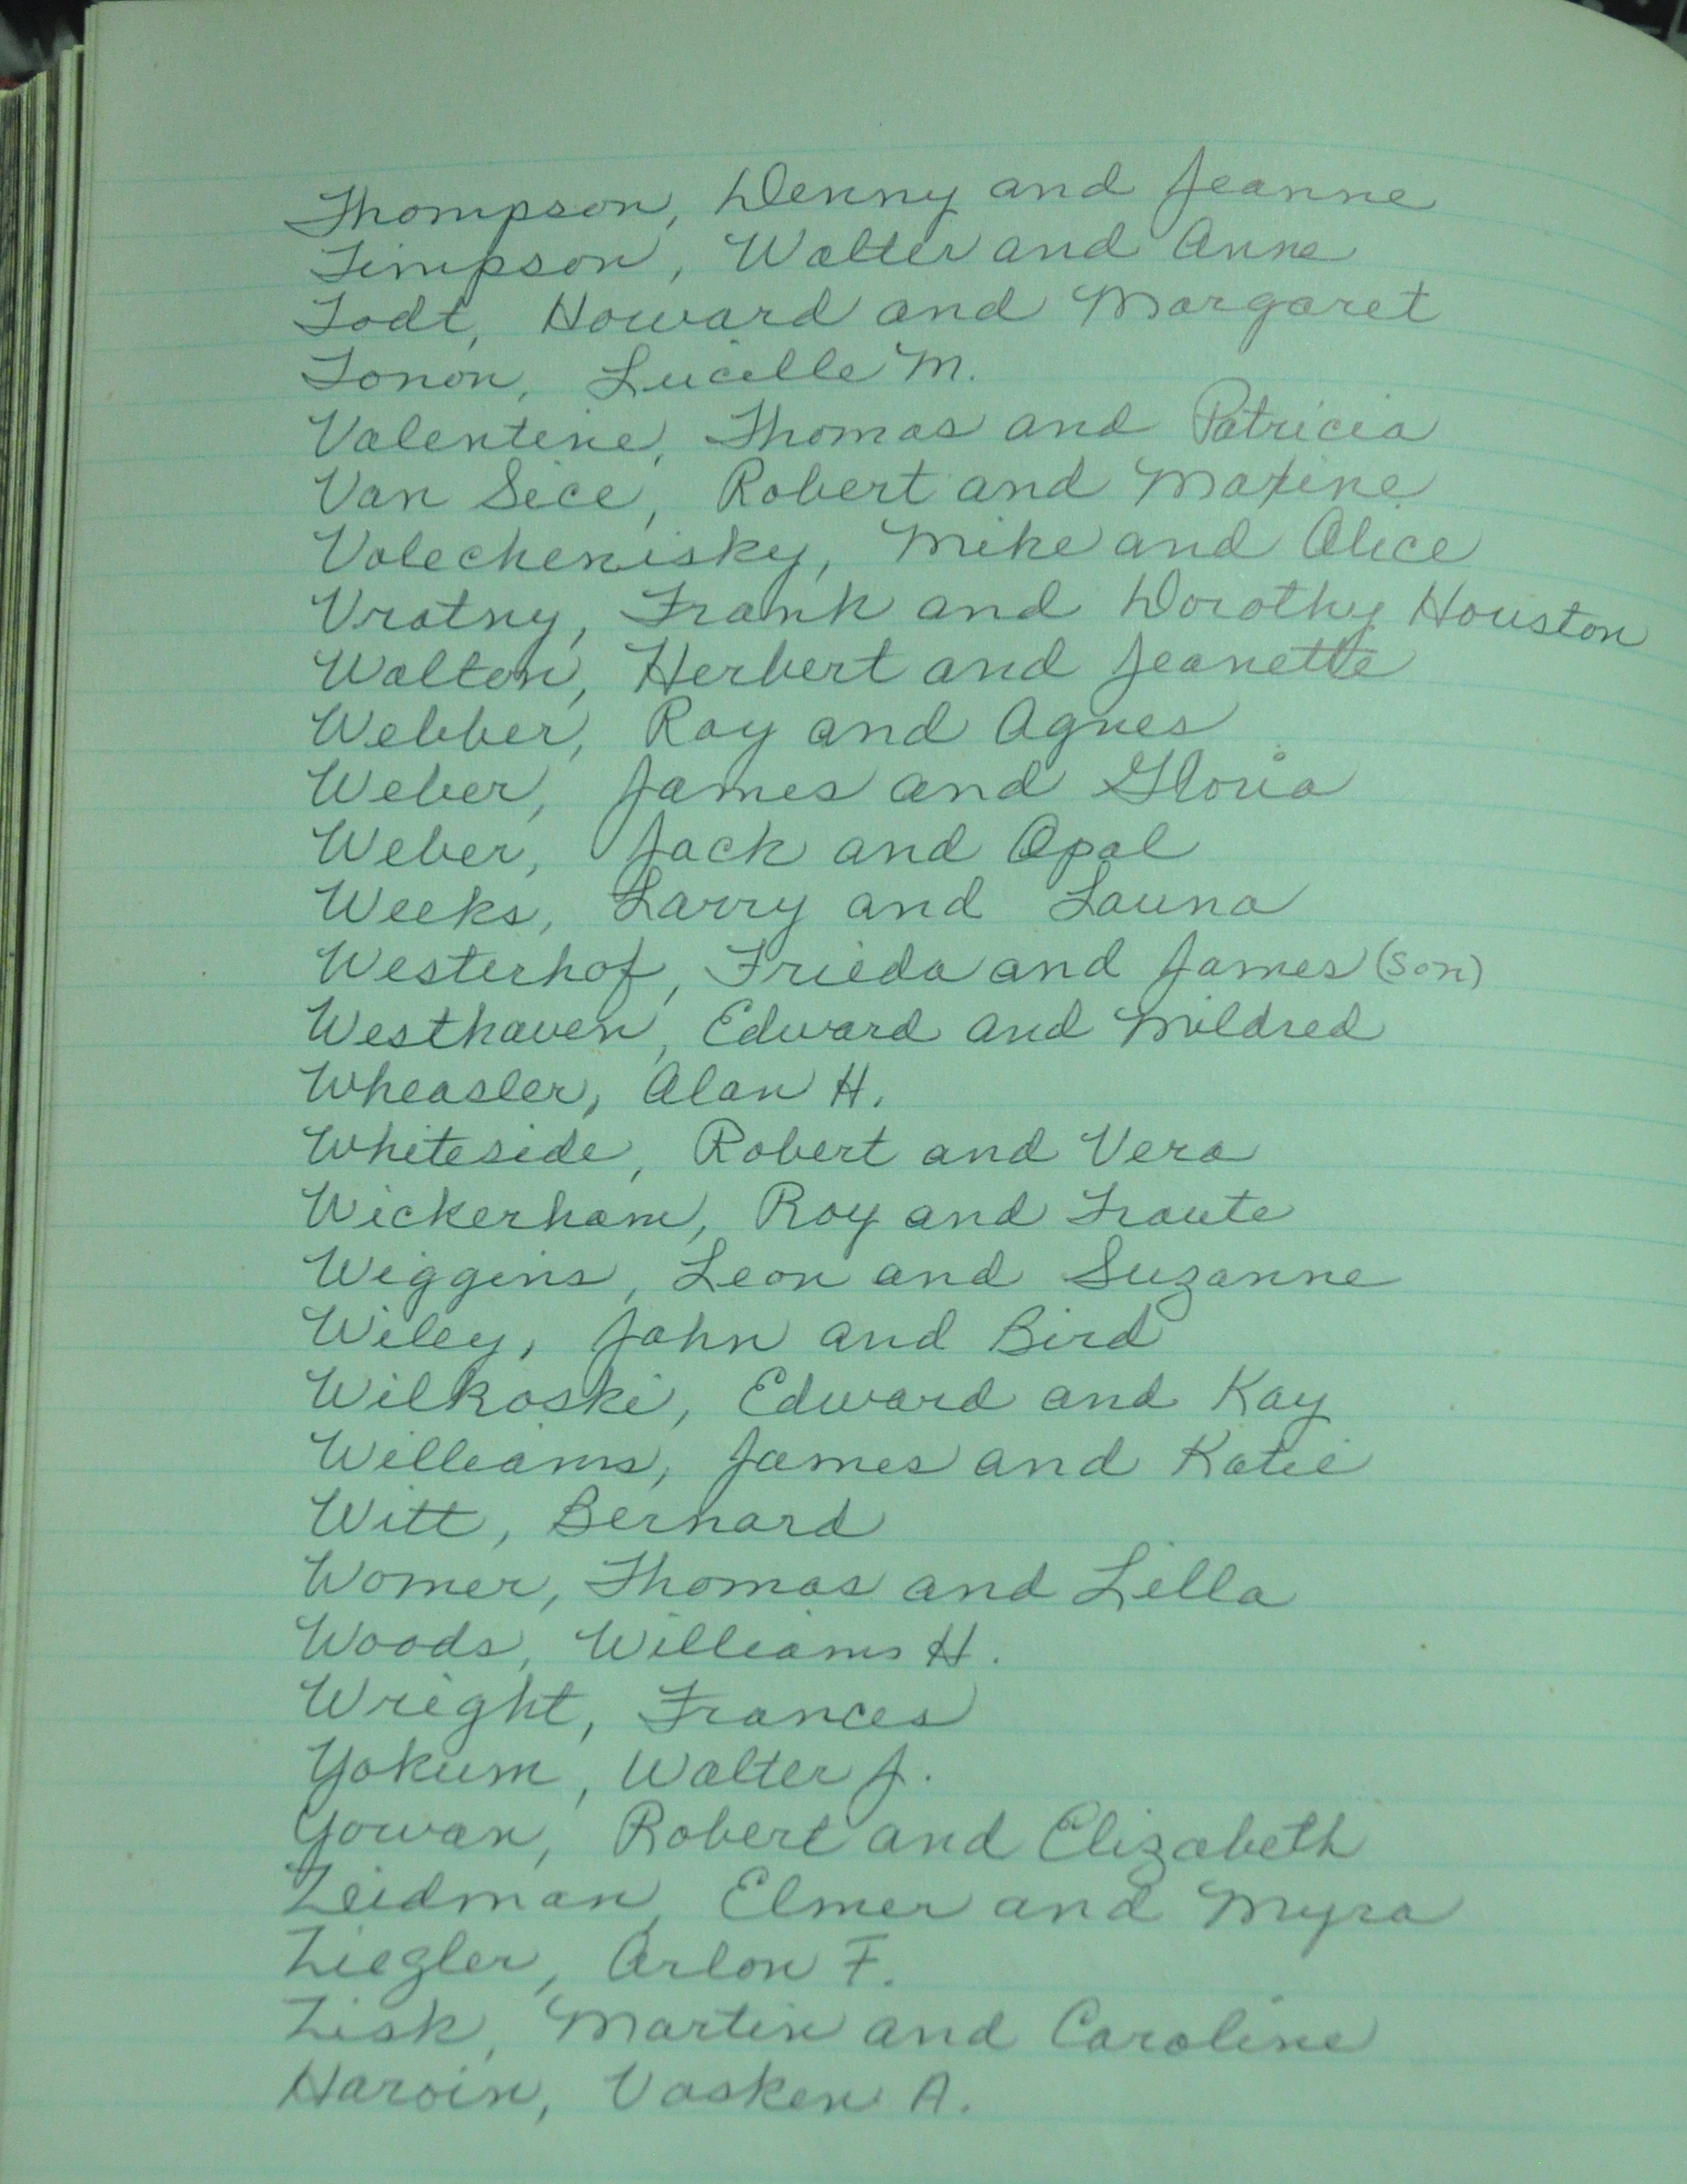 Thompson, Denny and Jeanne
Timpson, Walter and Anne
Todt, Howard and Margaret
Tonon, Lucille M.
Valentine, Thomas and Patricia
Van Sice, Robert and Maxine
Volechenisky, Mike and Alice
Vratny, Frank and Dorothy Houston
Walton, Herbert and Jeanette
Webber, Ray and Agnes
Weber, James and Gloria
Weber, Jack and Opal
Weeks, Larry and Launa
Westerhof, Frieda and James (son)
Westhaven, Edward and Mildred
Wheasler, Alan H.
Whiteside, Robert and Vera
Wickerham, Roy and Traute
Wiggins, Leon and Suzanne
Wiley, John and Bird
Wilkoski, Edward and Kay
Williams, James and Katie
Witt, Bernard
Womer, Thomas and Lilla
Woods, Williams H.
Wright, Frances
Yokum, Walter J.
Yowan, Robert and Elizabeth
Zeidman, Elmer and Myra
Ziegler, Arlon F.
Zisk, Martin and Caroline
Haroin, Vasken A.